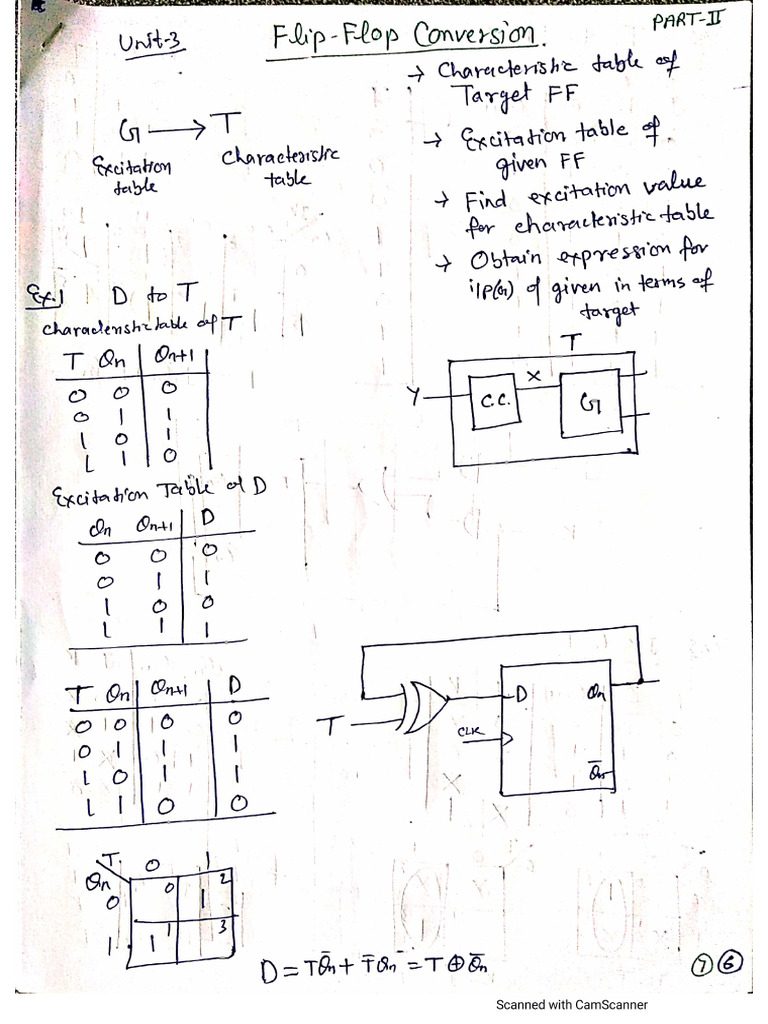 Unit-3
Flip-Flop Conversion.
PART-II
G → T
Excitation table
Characteristic table
→ Characteristic table of
Target FF
→ Excitation table of
given FF
→ Find excitation value
for characteristic table
→ Obtain expression for
i/p(G) of given in terms of
target
Ex.1 D to T
Characteristic table of T
T Qn Qn+1
0 0 0
0 1 1
1 0 1
1 1 0
T
Y C.C. X G
Excitation Table of D
Qn Qn+1 D
0 0 0
0 1 1
1 0 0
1 1 1
T Qn Qn+1 D
0 0 0 0
0 1 1 1
1 0 1 1
1 1 0 0
T
D Qn
CLK
Q̅n
T 0 1
Qn
0 0 1 2
1 1 1 3
D = TQ̅n + T̅Qn = T ⊕ Q̅n
7 6
Scanned with CamScanner